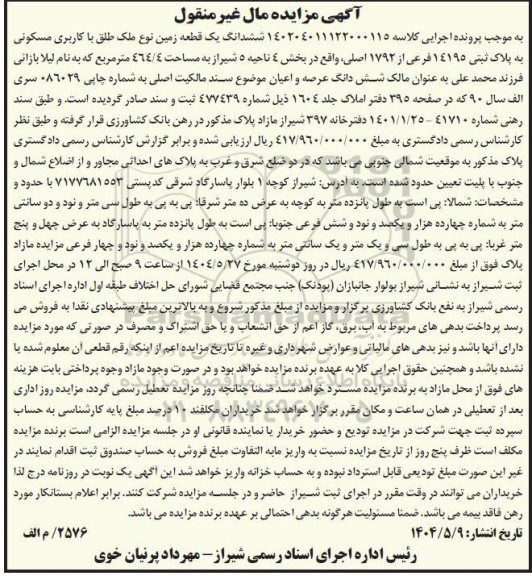 آگهی مزایده مال غیرمنقول
به موجب پرونده اجرایی کلاسه ۱۴۰۲۰۴۰۱۱۱۲۲۰۰۰۱۱۵ ششدانگ یک قطعه زمین نوع ملک طلق با کاربری مسکونی
به پلاک ثبتی ۱۴۱۹۵ فرعی از ۱۷۹۲ اصلی، واقع در بخش ۴ ناحیه ۵ شیراز به مساحت ۴۶۴/۴ مترمربع که به نام لیلا بازانی
فرزند محمد علی به عنوان مالک شش دانگ عرصه و اعیان موضوع سند مالکیت اصلی به شماره چاپی ۰۸۶۰۲۹ سری
الف سال ۹۰ که در صفحه ۳۹۵ دفتر املاک جلد ۱۶۰۴ ذیل شماره ۴۷۷۴۳۹ ثبت و سند صادر گردیده است. و طبق سند
رهنی شماره ۴۱۷۱۰ – ۱۴۰۱/۱/۲۵ دفترخانه ۳۹۷ شیراز مازاد پلاک مذکور در رهن بانک کشاورزی قرار گرفته و طبق نظر
کارشناس رسمی دادگستری به مبلغ ۴۱۷/۹۶۰/۰۰۰/۰۰۰ ریال ارزیابی شده و برابر گزارش کارشناس رسمی دادگستری
پلاک مذکور به موقعیت شمالی جنوبی می باشد که در دو ضلع شرق و غرب به پلاک های احداثی مجاور و از اضلاع شمال و
جنوب با پلیت تعیین حدود شده است. به آدرس: شیراز کوچه ۱ بلوار پاسارگاد شرقی کدپستی ۷۱۷۷۶۸۱۵۵۳ با حدود و
مشخصات: شمالا: پی است به طول پانزده متر به کوچه به عرض ده متر شرقا: پی به پی به طول سی متر و نود و دو سانتی
متر به شماره چهارده هزار و یکصد و نود و شش فرعی جنوبا: پی است به طول پانزده متر به پاسارگاد به عرض چهل و پنج
متر غربا: پی به پی به طول سی و یک متر و یک سانتی متر به شماره چهارده هزار و یکصد و نود و چهار فرعی مزایده مازاد
پلاک فوق از مبلغ ۴۱۷/۹۶۰/۰۰۰/۰۰۰ ریال در روز دوشنبه مورخ ۱۴۰۴/۵/۲۷ از ساعت ۹ صبح الی ۱۲ در محل اجرای
ثبت شیراز به نشانی شیراز بولوار جانبازان (بودنک) جنب مجتمع قضایی شورای حل اختلاف طبقه اول اداره اجرای اسناد
رسمی شیراز به نفع بانک کشاورزی برگزار و مزایده از مبلغ مذکور شروع و به بالاترین مبلغ پیشنهادی نقدا به فروش می
رسد پرداخت بدهی های مربوط به آب، برق، گاز اعم از حق انشعاب و یا حق اشتراک و مصرف در صورتی که مورد مزایده
دارای آنها باشد و نیز بدهی های مالیاتی و عوارض شهرداری و غیره تا تاریخ مزایده اعم از اینکه رقم قطعی آن معلوم شده یا
نشده باشد و همچنین حقوق اجرایی کلا به عهده برنده مزایده خواهد بود و در صورت وجود مازاد وجوه پرداختی بابت هزینه
های فوق از محل مازاد به برنده مزایده مسترد خواهد شد. ضمنا چنانچه روز مزایده تعطیل رسمی گردد، مزایده روز اداری
بعد از تعطیلی در همان ساعت و مکان مقرر برگزار خواهد شد خریداران مکلفند ۱۰ درصد مبلغ پایه کارشناسی به حساب
سپرده ثبت جهت شرکت در مزایده تودیع و حضور خریدار یا نماینده قانونی او در جلسه مزایده الزامی است برنده مزایده
مکلف است ظرف پنج روز از تاریخ مزایده نسبت به واریز مابه التفاوت مبلغ فروش به حساب صندوق ثبت اقدام نمایند در
غیر این صورت مبلغ تودیعی قابل استرداد نبوده و به حساب خزانه واریز خواهد شد این آگهی یک نوبت در روزنامه درج لذا
خریداران می توانند در وقت مقرر در اجرای ثبت شیراز حاضر و در جلسه مزایده شرکت کنند. برابر اعلام بستانکار مورد
رهن فاقد بیمه می باشد. ضمنا مسئولیت هرگونه بدهی احتمالی بر عهده برنده مزایده می باشد.
تاریخ انتشار: ۱۴۰۴/۵/۹
۲۵۷۶/ م الف
رئیس اداره اجرای اسناد رسمی شیراز – مهرداد پرنیان خوی